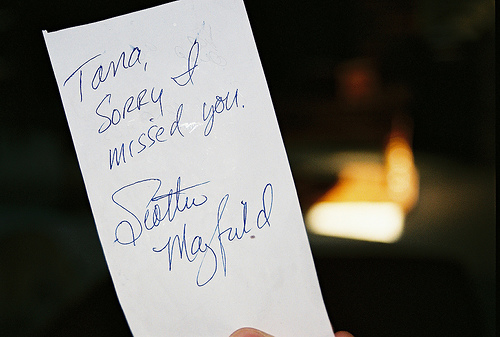 Tana,
Sorry I
missed you.
Scottie
Mayfield